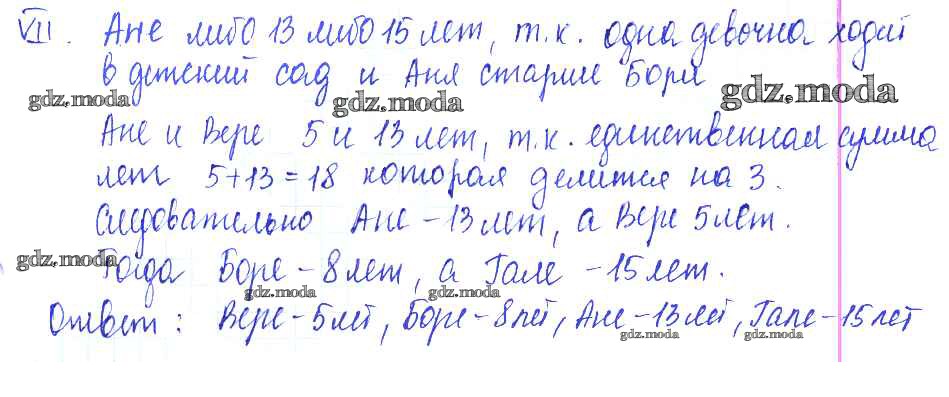 VII. Ане либо 13 либо 15 лет, т.к. одна девочка ходит
в детский сад и Аня старше Бори
gdz.moda gdz.moda gdz.moda
Ане и Вере 5 и 13 лет, т.к. единственная сумма
лет 5+13=18 которая делится на 3.
Следовательно Ане - 13 лет, а Вере 5 лет.
gdz.moda
Тогда Боре - 8 лет, а Гале - 15 лет.
gdz.moda gdz.moda
Ответ: Вере - 5 лет, Боре - 8 лет, Ане - 13 лет, Гале - 15 лет
gdz.moda gdz.moda